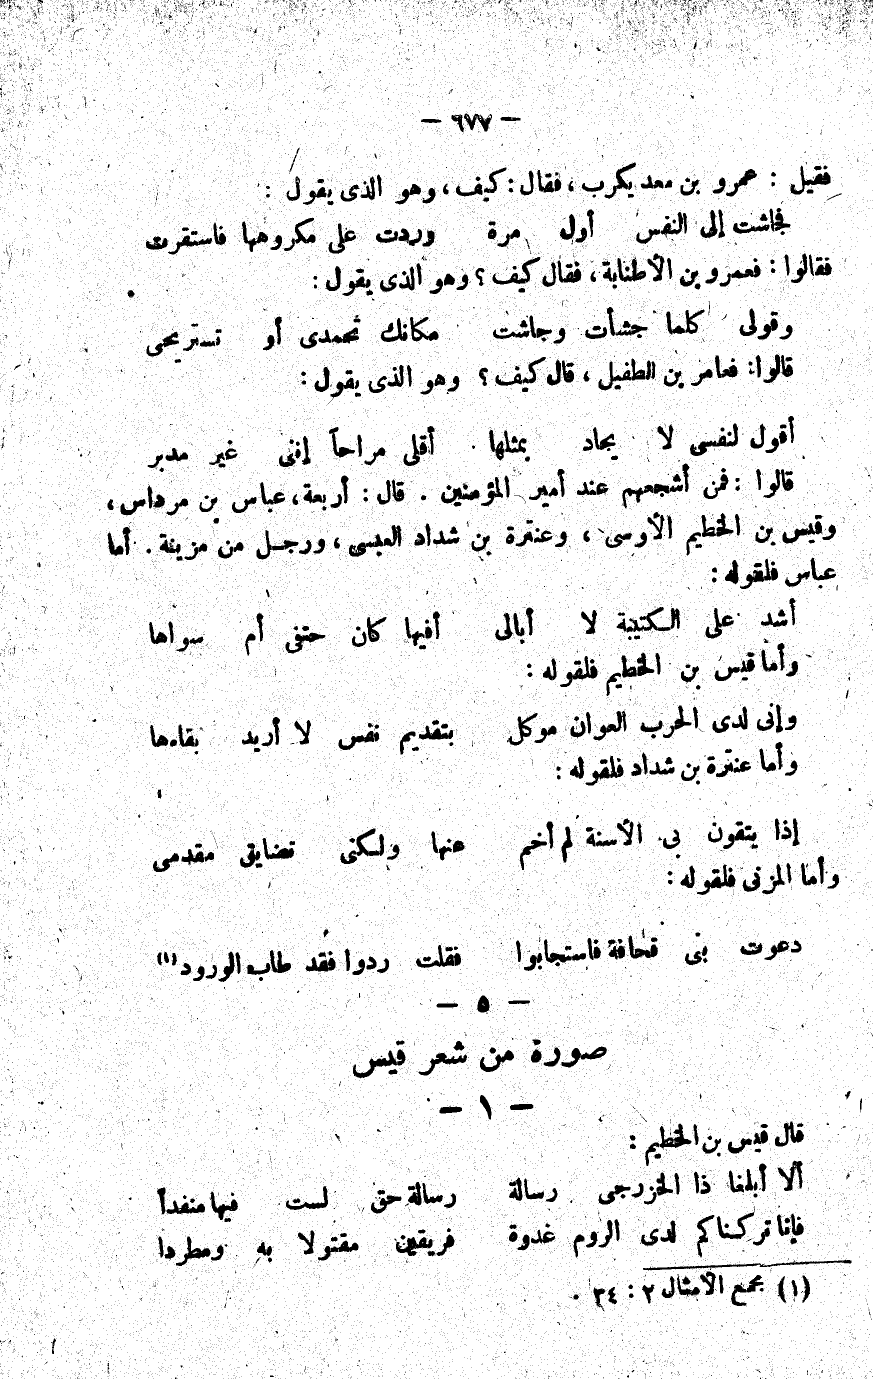 — ٦٧٧ —
فقيل : عمرو بن معد يكرب ، فقال : كيف ، وهو الذى يقول :
فجاشت إلى النفس أول مرة وردت على مكروهها فاستقرت
فقالوا : فعمرو بن الأطنابة ، فقال كيف ؟ وهو الذى يقول :
وقولى كلما جشأت وجاشت مكانك تحمدى أو تستريحى
قالوا : فعامر بن الطفيل ، قال كيف ؟ وهو الذى يقول :
أقول لنفسى لا يجاد بمثلها أقلى مراحاً إننى غير مدبر
قالوا : فمن أشجعهم عند أمير المؤمنين . قال : أربعة ، عباس بن مرداس ،
وقيس بن الخطيم الأوسى ، وعنترة بن شداد العبسى ، ورجل من مزينة . أما
عباس فلقوله :
أشد على الكتيبة لا أبالى أفيها كان حتفى أم سواها
وأما قيس بن الخطيم فلقوله :
وإنى لدى الحرب العوان موكل بتقديم نفس لا أريد بقاءها
وأما عنترة بن شداد فلقوله :
إذا يتقون بى الأسنة لم أخم عنها ولكنى تضايق مقدمى
وأما المزنى فلقوله :
دعوت بنى قحافة فاستجابوا فقلت ردوا فقد طاب الورود (١)
— ٥ —
صورة من شعر قيس
— ١ —
قال قيس بن الخطيم :
ألا أبلغا ذا الخزرجى رسالة رسالة حق لست فيها منفدأ
فإنا تركناكم لدى الروم غدوة فريقين مقتولا به ومطردا
(١) مجمع الأمثال ٢ : ٣٤ .